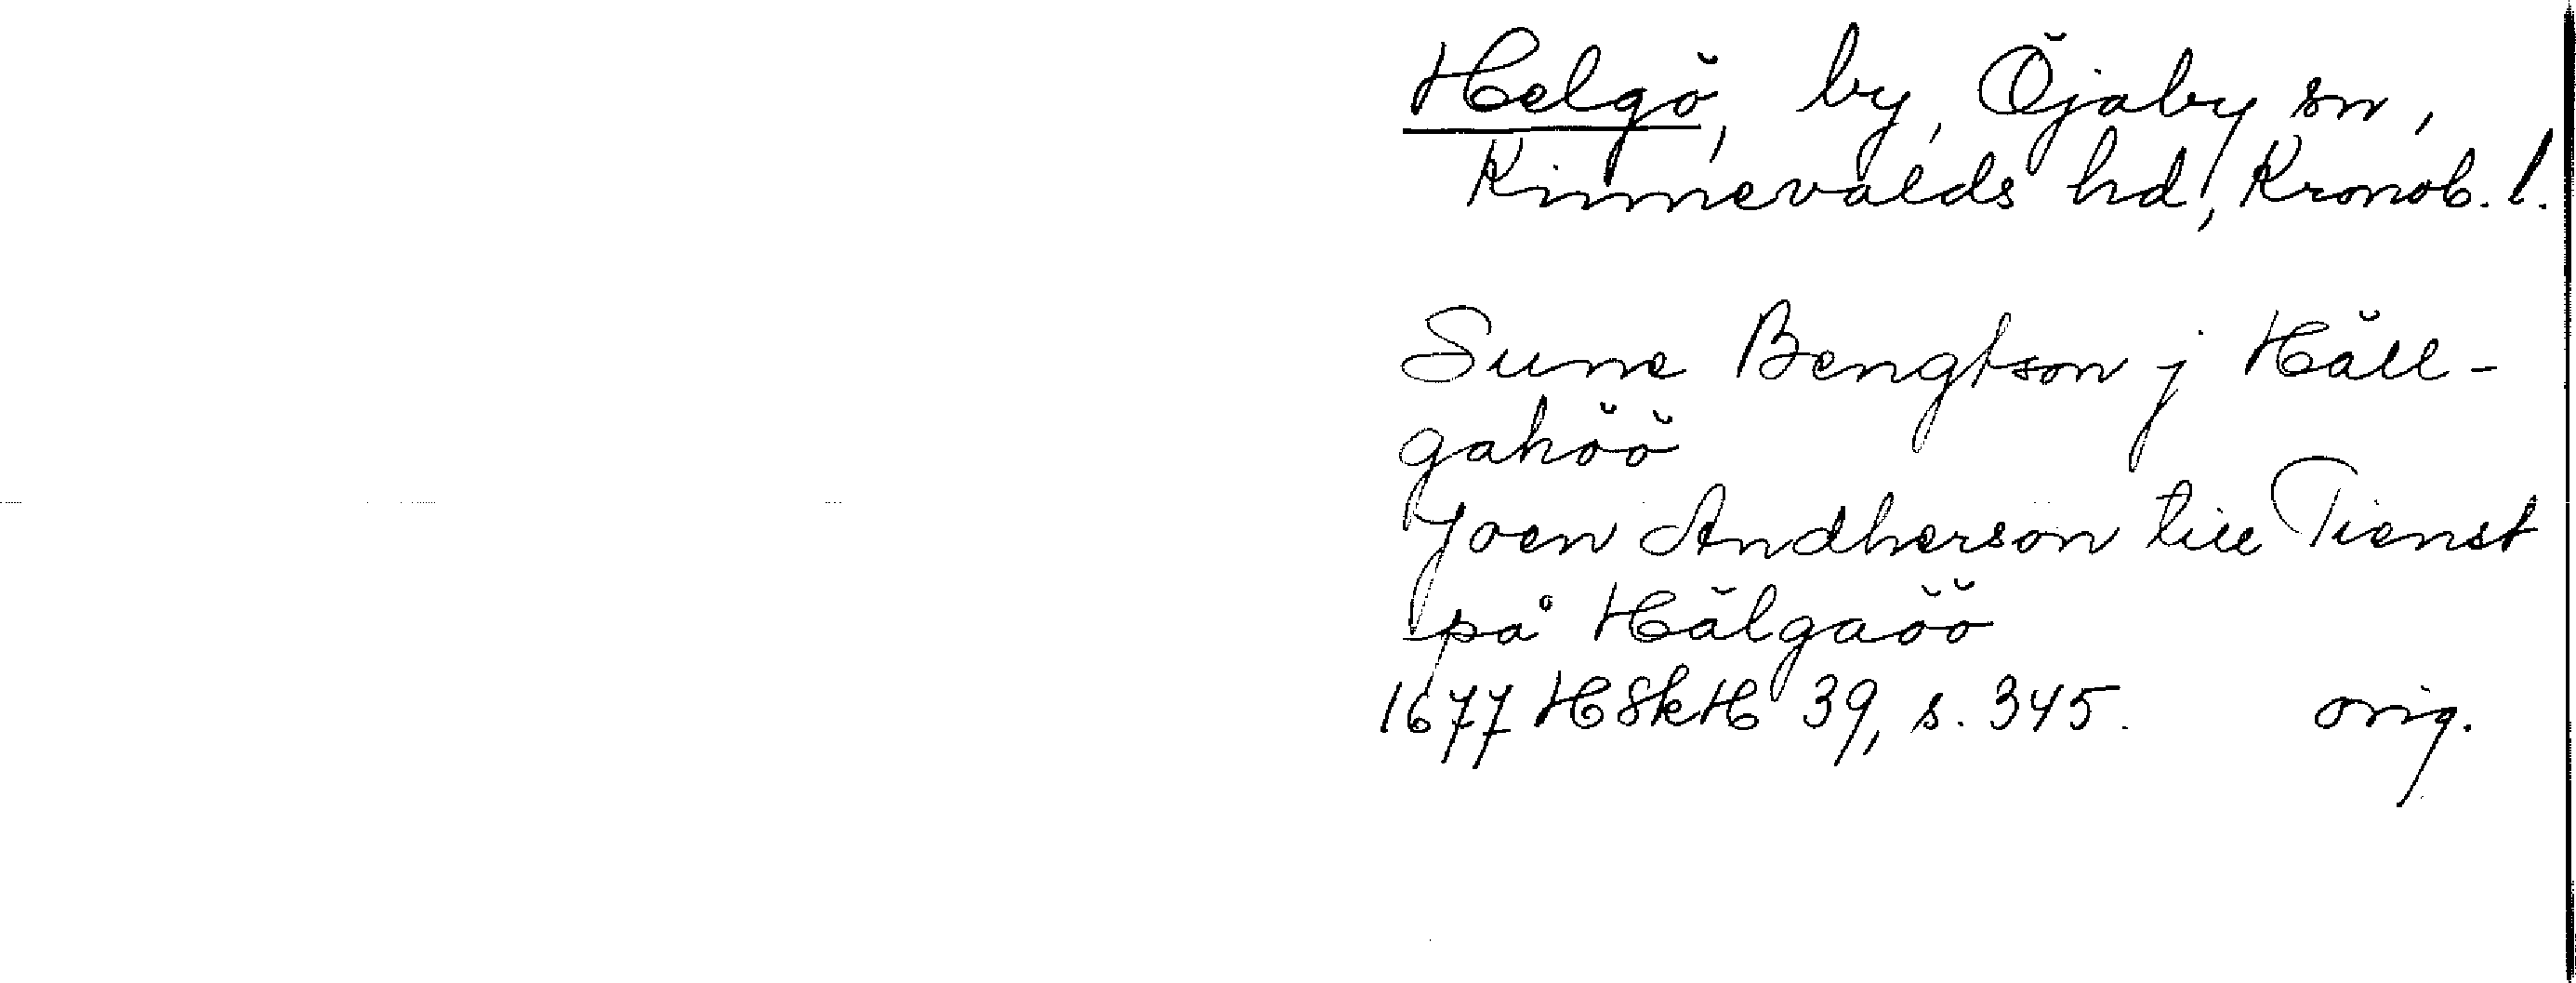 Helgö, by, Öjaby sn,
Kinnevalds hd, Kronob. l.
Sune Bengtson j Häll-
gahöö
Joen Andherson till Tienst
på Hälgaöö
1677 HSkH 39, s. 345. orig.